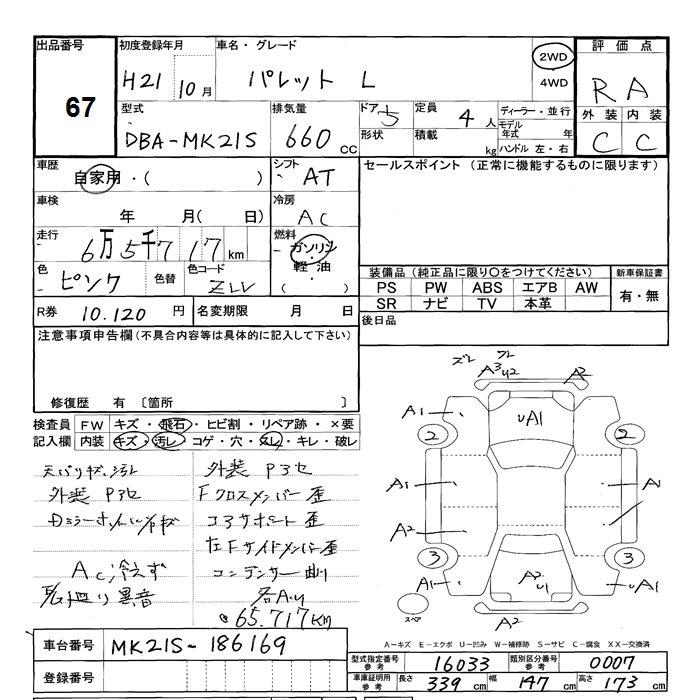 出品番号 初度登録年月 車名・グレード 2WD 評価点
67 H21 10月 パレット L 4WD R A
型式 排気量 ドア 定員 ディーラー・並行 外装 内装
DBA-MK21S 660 cc 5 4人 モデル年式 年 C C
形状 積載 kg ハンドル 左・右
車歴 自家用・( ) シフト AT セールスポイント (正常に機能するものに限ります)
車検 年 月( 日) 冷房 AC
走行 6万5千717km 燃料 ガソリン
軽油
( )
色 ピンク 色替 色コード ZLV
装備品 (純正品に限り○をつけてください) 新車保証書
PS PW ABS エアB AW 有・無
SR ナビ TV 本革
R券 10.120 円 名変期限 月 日 後日品
注意事項申告欄 (不具合内容等は具体的に記入して下さい)
修復歴 有 〔箇所 〕
検査員 FW キズ・飛石・ヒビ割・リペア跡・×要
記入欄 内装 キズ・汚レ・コゲ・穴・スレ・キレ・破レ
外装 P3セ
外装 P3セ
Fクロスメンバー 歪
コアサポート 歪
左Fサイドメンバー歪
Ac冷えず コンデンサー曲り
異音
65.717KM
ズレ フレ
A3 U2 A2
A1 UA1
2 2
A1 A1
A2
3 3
A1 A2 U1 UA1
スペア A2
A-キズ E-エクボ U-凹み W-補修跡 S-サビ C-腐食 XX-交換済
車台番号 MK21S-186169
登録番号
型式指定番号 参考 16033 類別区分番号 参考 0007
車庫証明用 参考 長さ 339 cm 幅 147 cm 高さ 173 cm